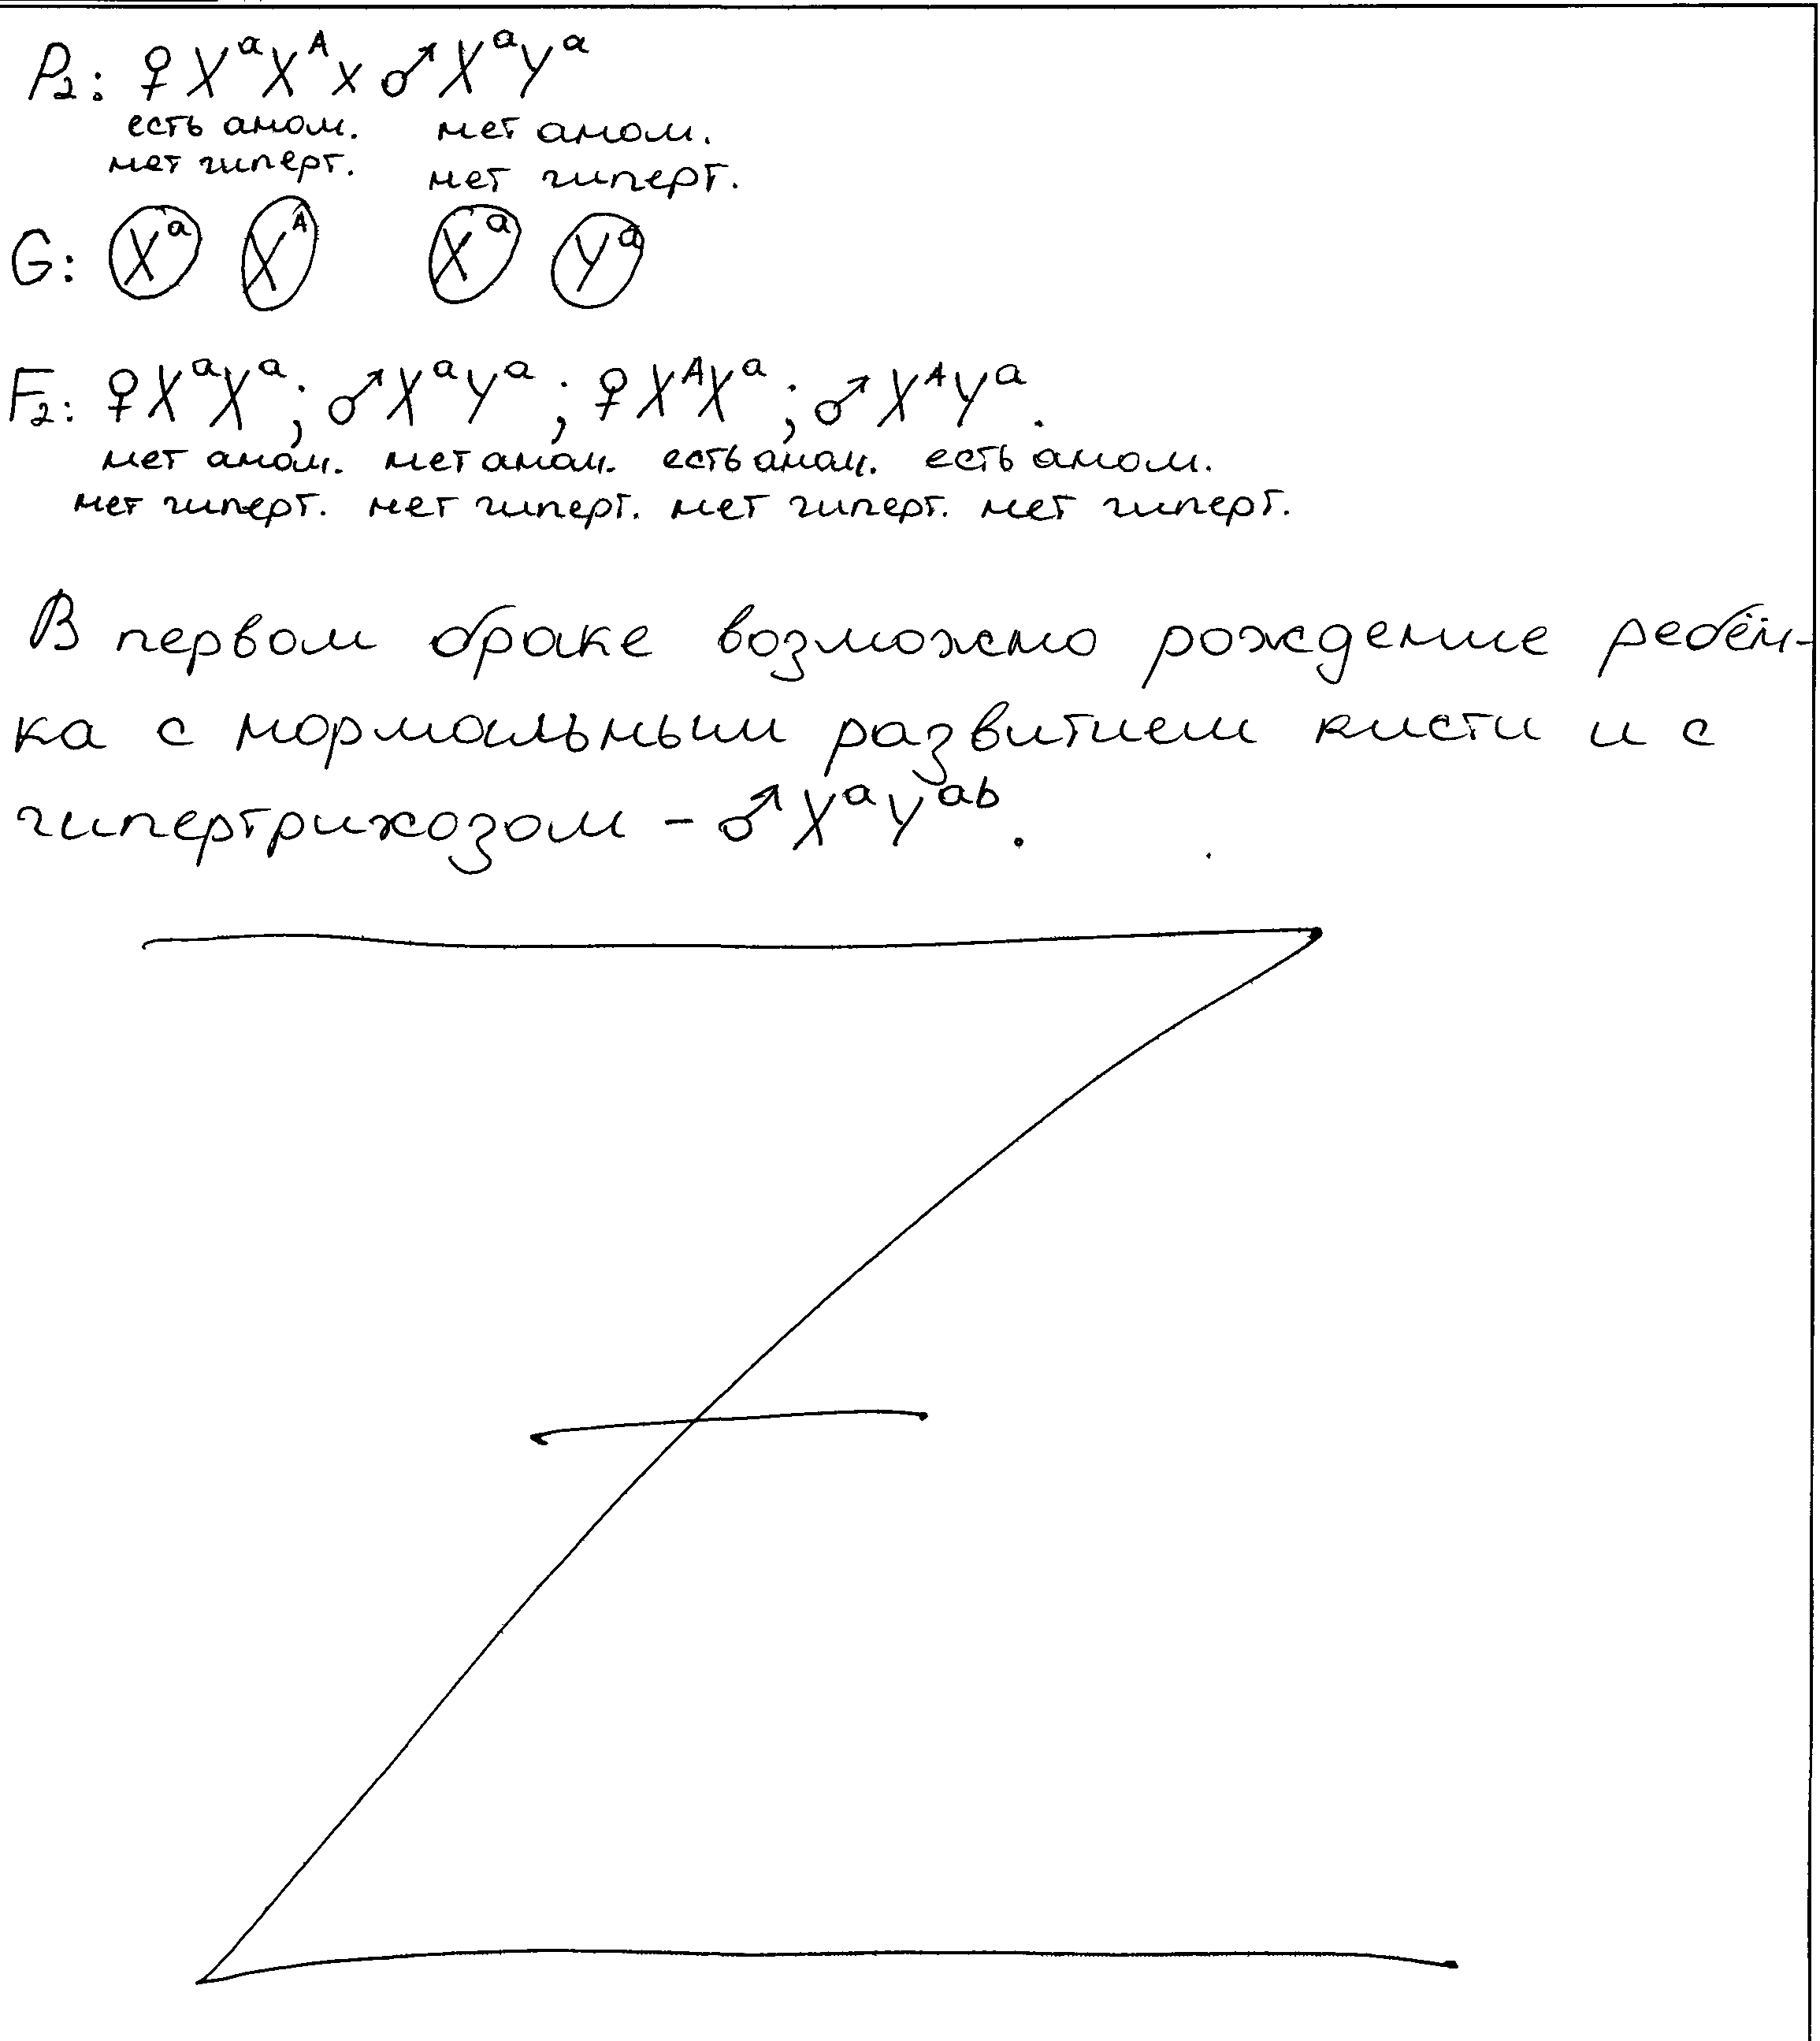 P₂: ♀XᵃXᴬ x ♂XᵃYᵃ
есть аном. нет аном.
нет гиперт. нет гиперт.
G: Xᵃ Xᴬ Xᵃ Yᵃ
F₂: ♀XᵃXᵃ; ♂XᵃYᵃ; ♀XᴬXᵃ; ♂XᴬYᵃ.
нет аном. нет аном. есть аном. есть аном.
нет гиперт. нет гиперт. нет гиперт. нет гиперт.
В первом браке возможно рождение ребён-
ка с нормальным развитием кисти и с
гипертрихозом – ♂XᵃYᵃᵇ.